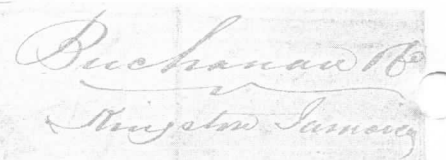 Buchanan &Co
Kingston Jamaica